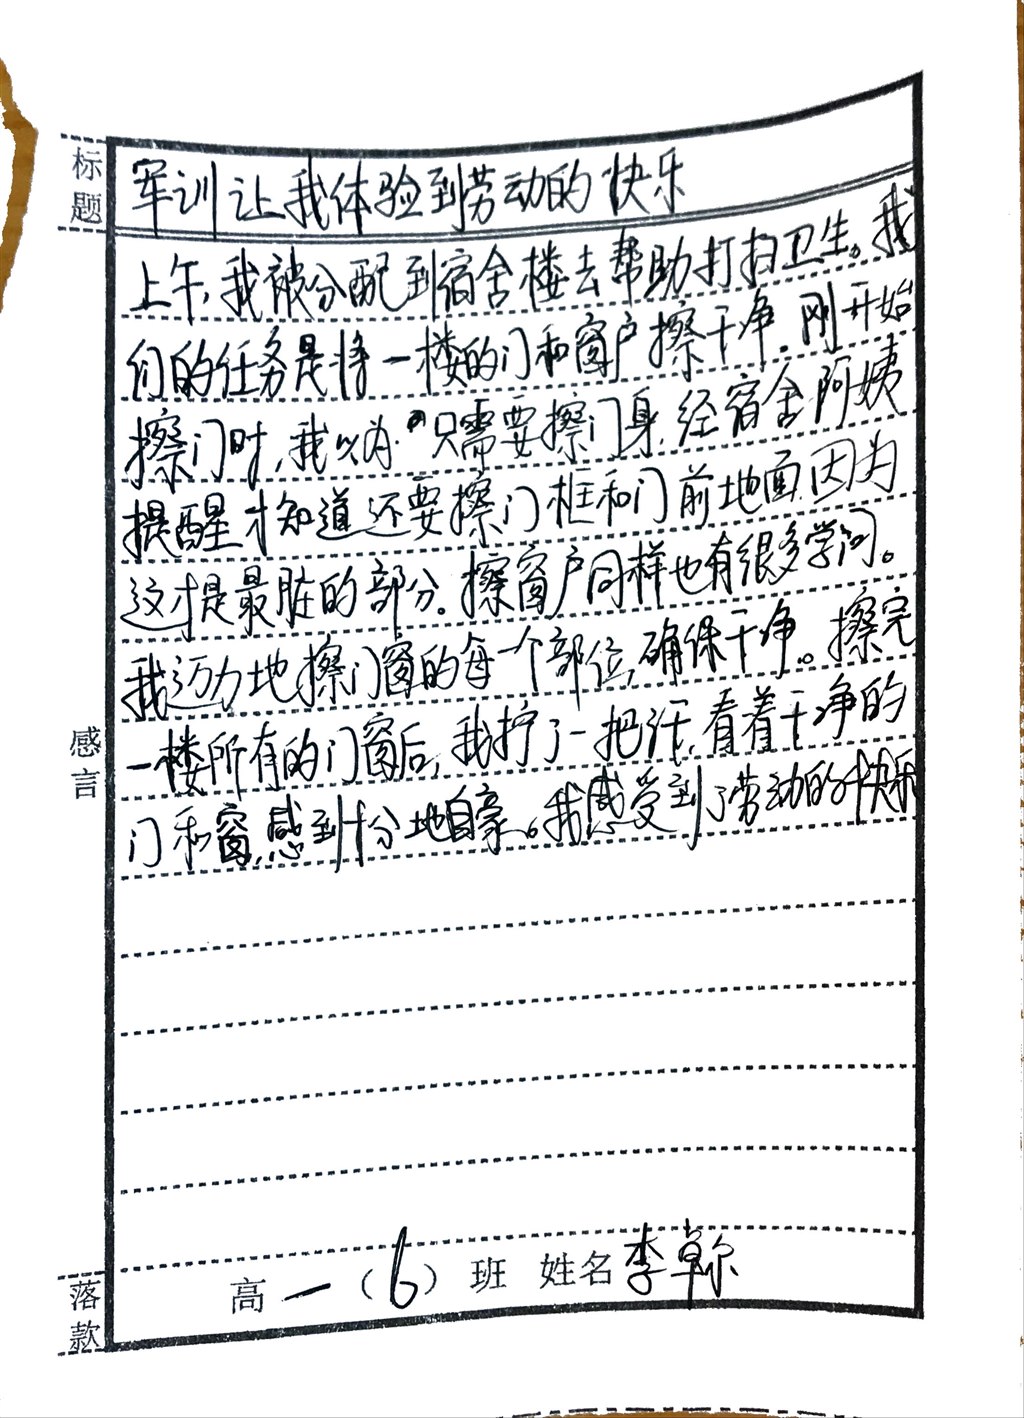 标题
军训让我体验到劳动的快乐
上午,我被分配到宿舍楼去帮助打扫卫生。我
们的任务是将一楼的门和窗户擦干净.刚开始
擦门时,我以为只需要擦门身,经宿舍阿姨
提醒才知道还要擦门框和门前地面,因为
这才是最脏的部分。擦窗户同样也有很多学问。
我迈力地擦门窗的每一个部位,确保干净。擦完
一楼所有的门窗后,我拧了一把汗,看着干净的
门和窗,感到十分地自豪。我感受到了劳动的快乐
感言
落款
高一(6)班 姓名李卓尔